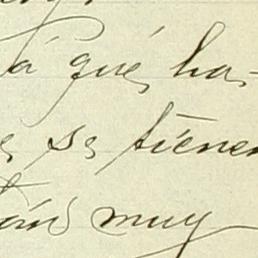 á qué, ha-
se tienen
tán muy